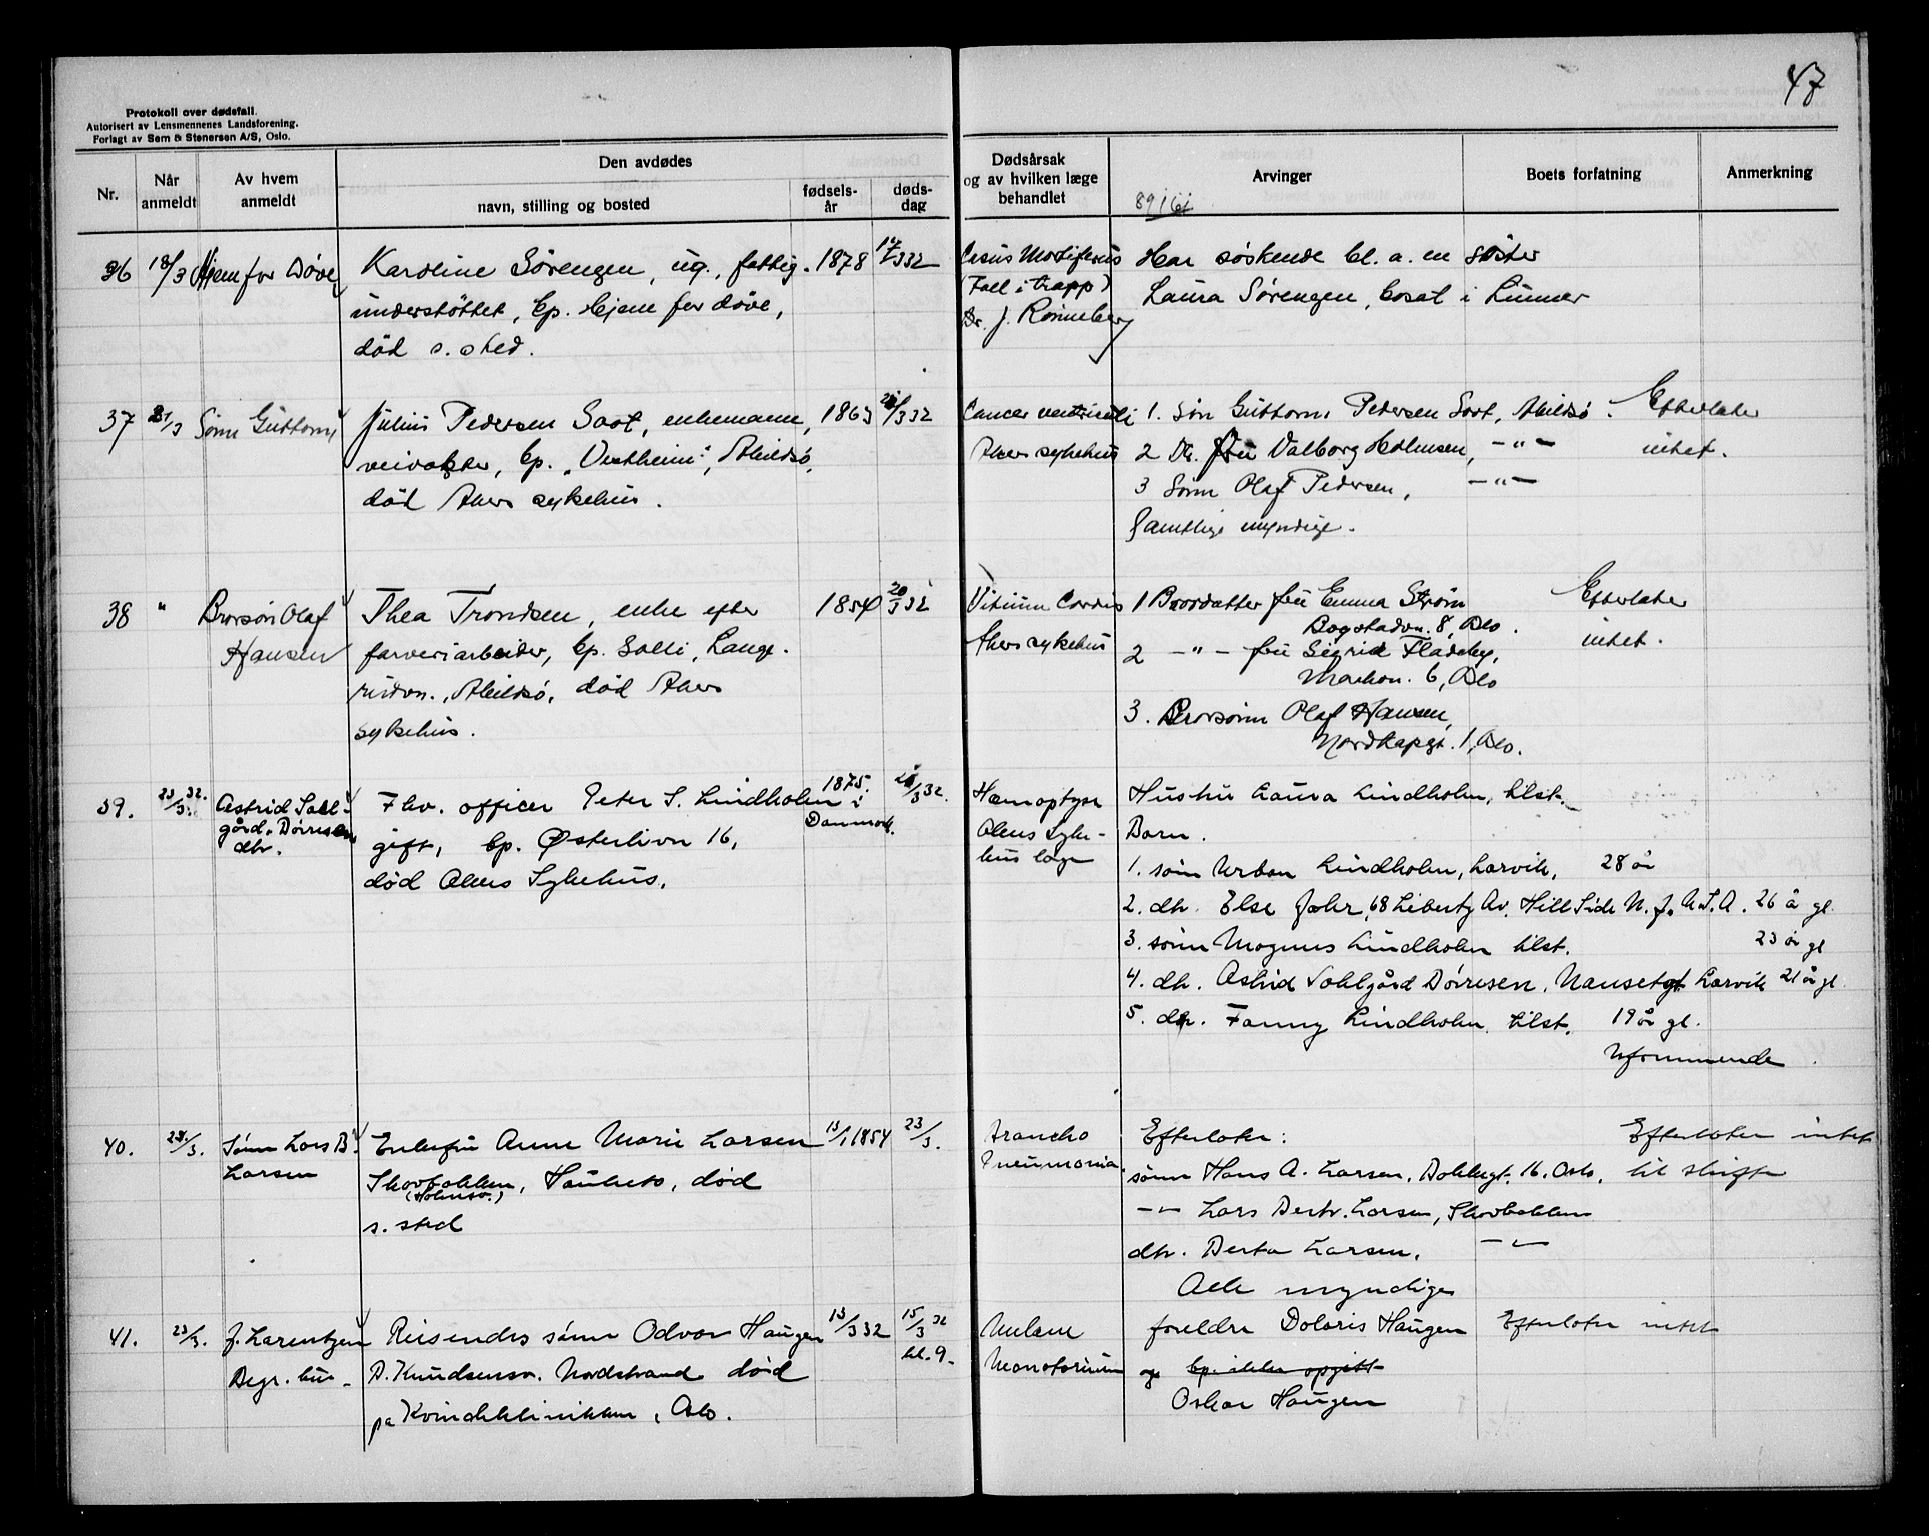 47
Protokoll over dødsfall.
Autorisert av Lensmennenes Landsforening.
Forlagt av Sem & Stenersen A/S, Oslo.
Nr.
Når
anmeldt
Av hvem
anmeldt
Den avdødes
navn, stilling og bosted
fødsels-
år
døds-
dag
Dødsårsak
og av hvilken læge
behandlet
Arvinger
Boets forfatning
Anmerkning
36 18/3 Hjem for Døve
Karoline Sørengen, ug., fattig-
understøttet, bp. Hjem for døve,
død s. sted.
1878 17/3 32
Casus Mortiferus
(Fall i trapp)
Dr. J. Rønneberg
Har søskende bl. a. en søster
Laura Sørengen, bosat i Lunner
37 21/3 Sønn Guttorm
Julius Pedersen Saot, enkemann,
veivokter, bp. "Vestheim", Abildsø,
død Akers sykehus.
1863 /3 32
Cancer ventriculi
Akers sykehus
1. Søn Guttorm Pedersen Saot, Abildsø.
2 Dt. fru Valborg Holmsen, -"-
3 Sønn Olaf Pedersen, -"-
Samtlige myndige.
Efterlater
intet.
38 " Brorsøn Olaf
Hansen
Thea Trondsen, enke efter
farveriarbeider, bp. Solli, Lange-
rudvn., Abildsø, død Akers
sykehus.
1854 20/3 32
Vitium Cordis
Akers sykehus
1 Brordatter fru Emma Strøm
Bogstadvn. 8, Oslo.
2 -"- fru Sigrid Fladeby,
6, Oslo
3. Brorsønn Olaf Hansen,
Nordkapgt. 1, Oslo.
Efterlater
intet.
39. 23/3 32.
Astrid Sahl-
gård Dørresen
dtr.
Fhv. officer Peter S. Lindholm
gift, bp. Østerlivn 16,
død Akers Sykehus.
1875. i
Danmark.
/3 32.
Hæmoptyse
Akers Syke-
hus læge
Hustru Laura Lindholm, tilst.
Barn.
1. sønn Urban Lindholm, Larvik, 28 år
2. dtr. Else Jahr, 68 Liberty Av. Hill Side N. J. U.S.A. 26 å gl.
3. sønn Magnus Lindholm tilst. 23 år gl
4. dtr. Astrid Sahlgård Dørresen, Nansetgt Larvik 21 år gl
5. dtr. Fanny Lindholm tilst. 19 år gl.
Uformuende.
40. 23/3. Sønn Lars B.
Larsen
Enkefru Anne Marie Larsen
Skovbakken, Hauketo, død
(Holmsv.)
s. sted
13/1 1854 23/3.
Broncho
Pneumonia
Efterlater:
sønn Hans A. Larsen, Dahlsgt. 16. Oslo.
-"- Lars Bertr. Larsen, Skovbakken
dtr. Berta Larsen. -"-
Alle myndige
Efterlater intet
til skifte
41. 23/3. J. Larentzen
Begr. bur.
Reisendes sønn Odvar Haugen
D. Knudsensv. Nordstrand død
på Kvindeklinikken, Oslo.
13/3 32 15/3 32
kl. 9.
foreldre Doloris Haugen
og bp. ikke opgitt
Oskar Haugen
Efterlater intet